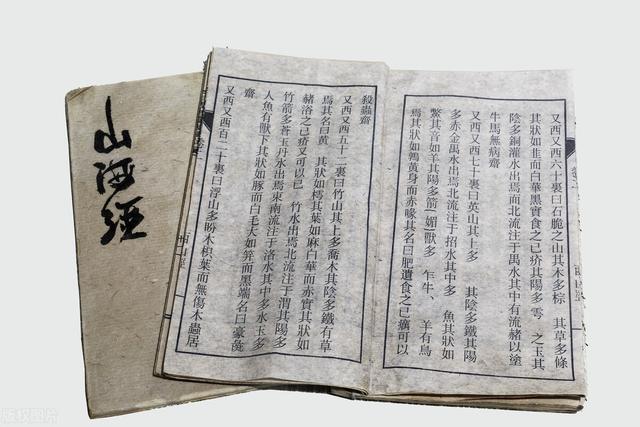 又西又西六十裏曰石脆之山其木多棕 其草多條
其狀如韭而白華黑實食之已疥其陽多 雩 之玉其
陰多銅灌水出焉而北流注于禺水其中有流赭以塗
牛馬無病齋
又西又西七十裏曰英山其上多 其陰多鐵其陽
多赤金禺水出焉北流注于招水其中多 魚其狀如
鱉其音如羊其陽多箭[媚]獸多 㸲牛、 羊有鳥
焉其狀如鶉黃身而赤喙其名曰肥遺食之已癘可以
殺蟲齋
又西又西五十二裏曰竹山其上多喬木其陰多鐵有草
焉其名曰黃 其狀如樗其葉如麻白華而赤實其狀如
赭浴之已疥又可以已 竹水出焉北流注于渭其陽多
竹箭多蒼玉丹水出焉東南流注于洛水其中多水玉多
人魚有獸下其狀如豚而白毛大如笄而黑端名曰豪彘
齋
又西又西百二十裏曰浮山多盼木枳葉而無傷木蟲居
西山經
山海經
版权图片